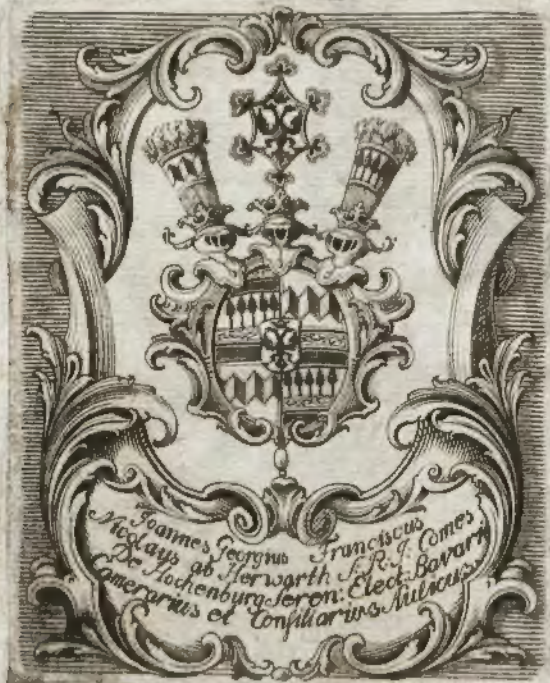 Joannes Georgius Franciscus
Nicolaus ab Herwarth S. R. J. Comes
De Hochenburg Seren: Elect: Bavariæ
Camerarius et Consiliarius Aulicus